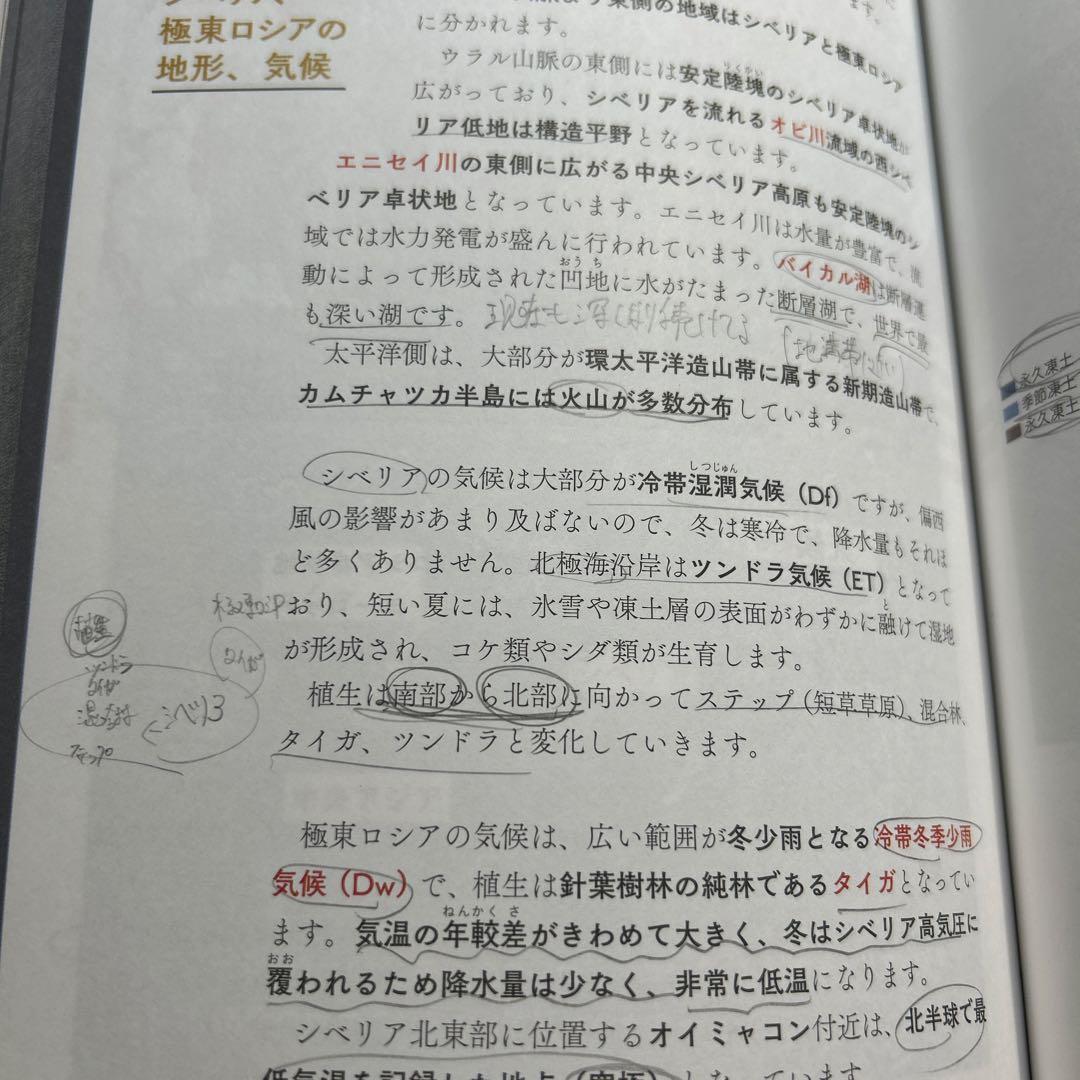 極東ロシアの
地形、気候
東側の地域はシベリアと極東ロシア
に分かれます。
ウラル山脈の東側には安定陸塊のシベリア卓状地が
広がっており、シベリアを流れるオビ川流域の西シベ
リア低地は構造平野となっています。
エニセイ川の東側に広がる中央シベリア高原も安定陸塊のシ
ベリア卓状地となっています。エニセイ川は水量が豊富で、流
域では水力発電が盛んに行われています。バイカル湖は断層運
動によって形成された凹地に水がたまった断層湖で、世界で最
も深い湖です。
太平洋側は、大部分が環太平洋造山帯に属する新期造山帯で、
カムチャツカ半島には火山が多数分布しています。
シベリアの気候は大部分が冷帯湿潤気候（Df）ですが、偏西
風の影響があまり及ばないので、冬は寒冷で、降水量もそれほ
ど多くありません。北極海沿岸はツンドラ気候（ET）となって
おり、短い夏には、氷雪や凍土層の表面がわずかに融けて湿地
が形成され、コケ類やシダ類が生育します。
植生は南部から北部に向かってステップ（短草草原）、混合林、
タイガ、ツンドラと変化していきます。
極東ロシアの気候は、広い範囲が冬少雨となる冷帯冬季少雨
気候（Dw）で、植生は針葉樹林の純林であるタイガとなってい
ます。気温の年較差がきわめて大きく、冬はシベリア高気圧に
覆われるため降水量は少なく、非常に低温になります。
シベリア北東部に位置するオイミャコン付近は、北半球で最
低気温を記録した地点（寒極）となっています。
ツンドラ
タイガ
ステップ
タイガ
永久凍土
季節凍土
永久凍土